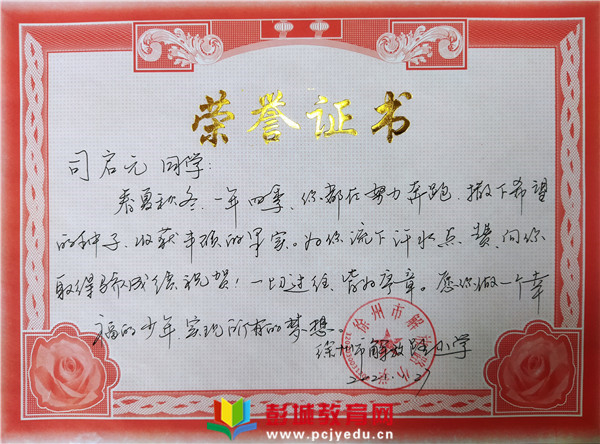 荣誉证书
司启元 同学:
春夏秋冬、一年四季、你都在努力奔跑、撒下希望
的种子、收获丰硕的果实。为你流下汗水点赞、向你
取得骄人成绩祝贺!一切过往、皆为序章。愿你做一个幸
福的少年、实现所有的梦想。
徐州市解放路小学
彭城教育网
www.pcjyedu.cn